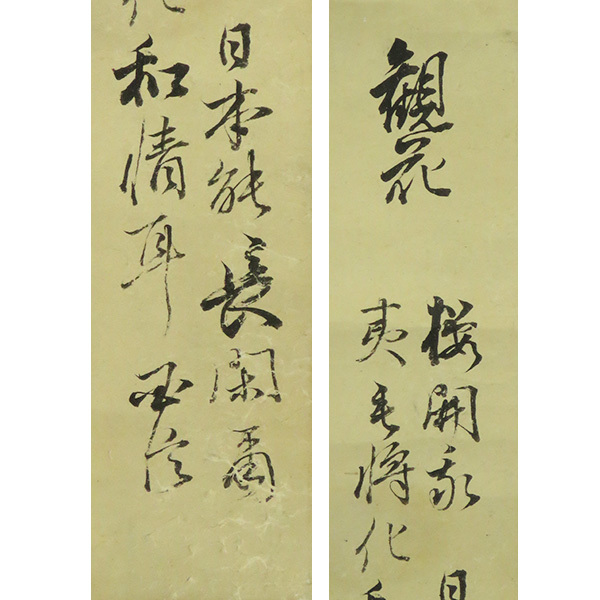 觀花
櫻開我日
夷毛將化
日本能長閑爾
和情耳